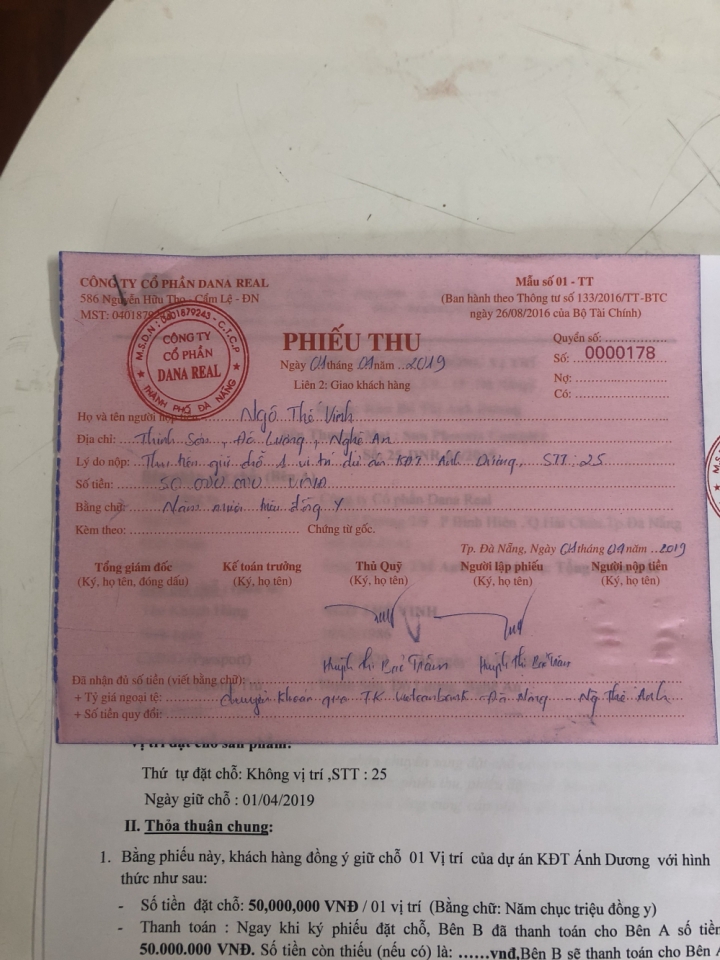 CÔNG TY CỔ PHẦN DANA REAL
586 Nguyễn Hữu Thọ - Cẩm Lệ - ĐN
MST: 0401879243
Mẫu số 01 - TT
(Ban hành theo Thông tư số 133/2016/TT-BTC
ngày 26/08/2016 của Bộ Tài Chính)
M.S.D.N: 0401879243 - C.T.C.P
CÔNG TY
CỔ PHẦN
DANA REAL
THÀNH PHỐ ĐÀ NẴNG
PHIẾU THU
Ngày 01 tháng 04 năm 2019
Liên 2: Giao khách hàng
Quyển số:
Số: 0000178
Nợ:
Có:
Họ và tên người nộp tiền: Ngô Thế Vinh
Địa chỉ: Thịnh Sơn, Đô Lương, Nghệ An
Lý do nộp: Thu tiền giữ chỗ 1 vị trí dự án KĐT Ánh Dương, STT: 25
Số tiền: 50.000.000 VNĐ
Bằng chữ: Năm mươi triệu đồng Y
Kèm theo: Chứng từ gốc.
Tp. Đà Nẵng, Ngày 01 tháng 04 năm 2019
Tổng giám đốc Kế toán trưởng Thủ Quỹ Người lập phiếu Người nộp tiền
(Ký, họ tên, đóng dấu) (Ký, họ tên) (Ký, họ tên) (Ký, họ tên) (Ký, họ tên)
Huỳnh Thị Trâm Huỳnh Thị Trâm
Đã nhận đủ số tiền (viết bằng chữ):
+ Tỷ giá ngoại tệ: Chuyển khoản qua TK Vietcombank - Đà Nẵng - Ng Thế Anh
+ Số tiền quy đổi:
Vị trí đặt chỗ sản phẩm:
Thứ tự đặt chỗ: Không vị trí ,STT : 25
Ngày giữ chỗ : 01/04/2019
II. Thỏa thuận chung:
1. Bằng phiếu này, khách hàng đồng ý giữ chỗ 01 Vị trí của dự án KĐT Ánh Dương với hình
thức như sau:
- Số tiền đặt chỗ: 50,000,000 VNĐ / 01 vị trí (Bằng chữ: Năm chục triệu đồng y)
- Thanh toán : Ngay khi ký phiếu đặt chỗ, Bên B đã thanh toán cho Bên A số tiền
50.000.000 VNĐ. Số tiền còn thiếu (nếu có) là: ......vnđ,Bên B sẽ thanh toán cho Bên A